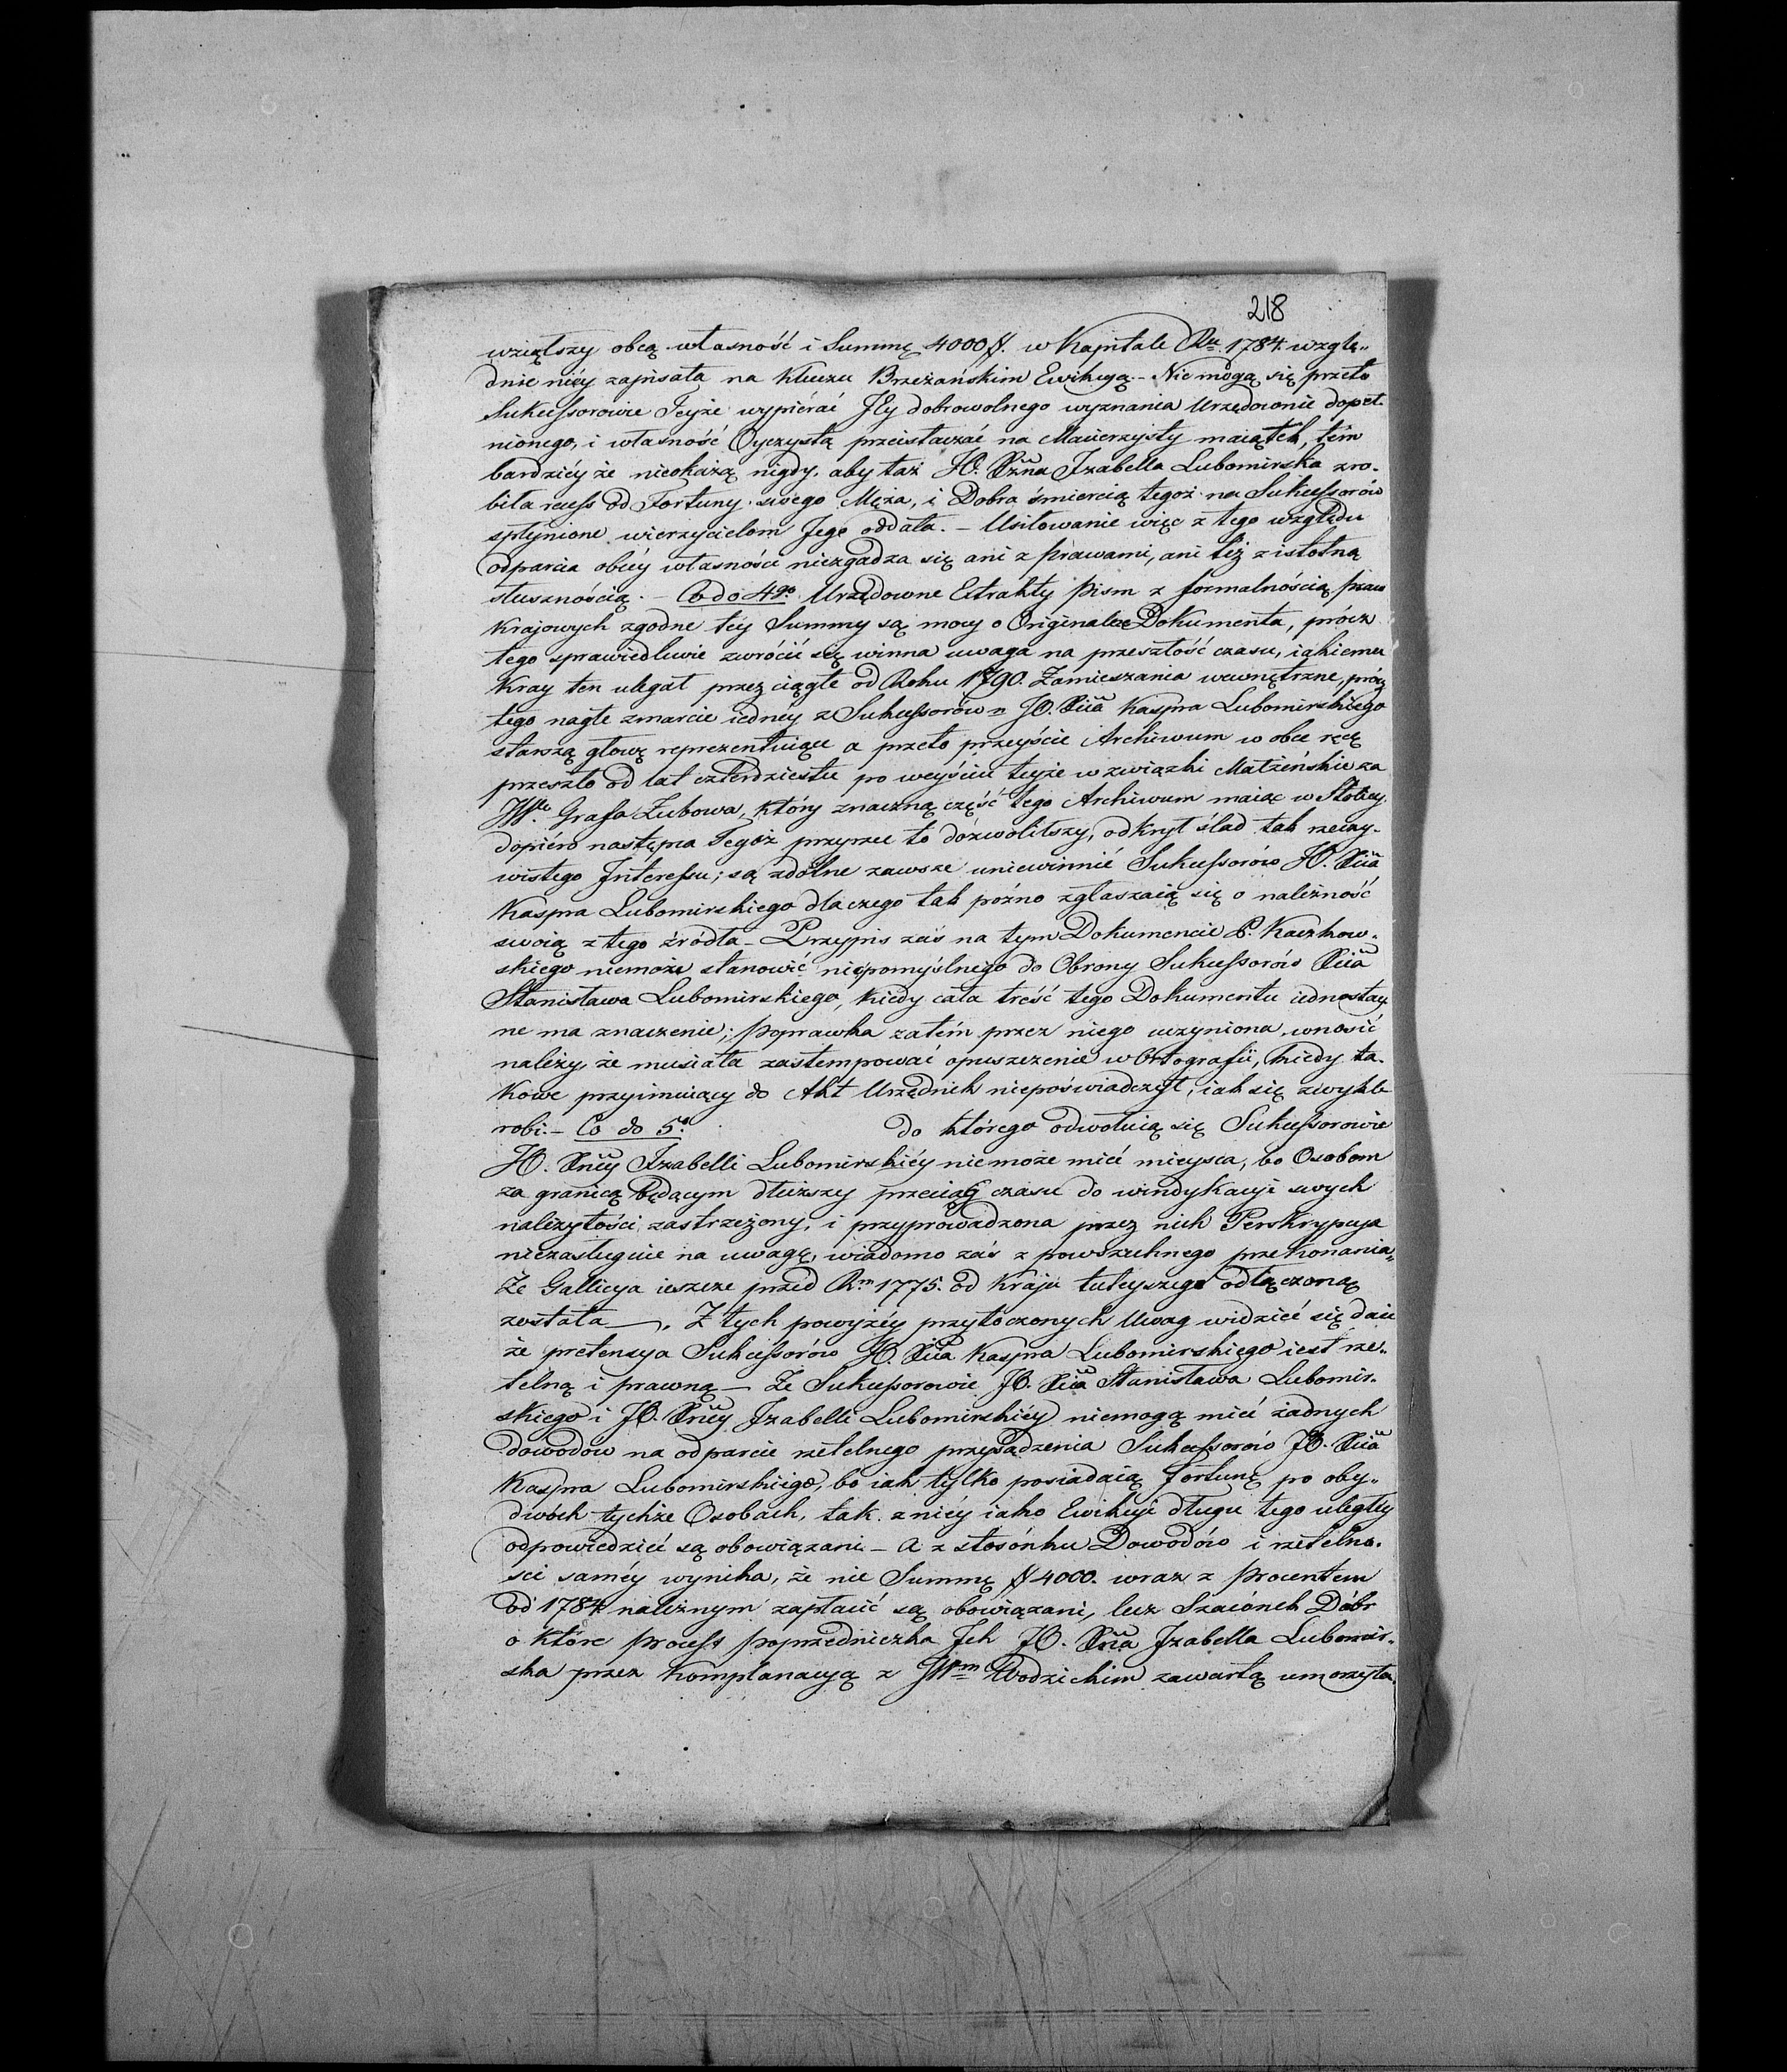 218
wziąłszy obcą własność i Summę 4000 #. w Kapitale Ru. 1784. wzglę„
dnie niéy zapisała na Kluczu Brzeżańskim Ewikcyą. - Nie mogą się przeto
Sukcessorowie Teyże wypiérać JEy dobrowolnego wyznania Urzędownie dopeł-
nionego, i własność Oyczystą przeistaczać na Macierzysty maiątek, tém
bardziéy że nieokażą nigdy, aby taż JO. Xżna Izabella Lubomirska zro-
biła recess od Fortuny swego Męża, i Dobra śmiercią tegoż na Sukcessorów
spłynione wierzycielom Jego oddała. - Usiłowanie więc z tego względu
odparcia obcéy własności niezgadza się ani z prawami, ani też z istotną
słusznością. - Co do 4go. Urzędowne Extrakty pism z formalnością praw
Krajowych zgodne téy Summy są mocy o Originalne Dokumenta, prócz
tego sprawiedliwie zwrócić się winna uwaga na przeszłość czasu, iakiemu
Kray ten ulegał przez ciągłe od Roku 1790. Zamieszania wewnętrzne, prócz
tego nagłe zmarcie iednéy z Sukcessorów JO. Xcia Kaspra Lubomirskiego
starszą głowę reprezentuiące a przeto przeyście Archiwum w obce ręce
przeszło od lat czterdziestu po weyściu teyże w związki Małżeńskie za
JWo. Grafa Zubowa, który znaczną część tego Archiwum maiąc w Stolicy,
dopiéro następca Tegoż przyrzec to dozwoliłszy, odkrył ślad tak rzeczy-
wistego Interessu; są zdolne zawsze uniewinnić Sukcessorów JO. Xcia
Kaspra Lubomirskiego dlaczego tak późno zgłaszaią się o należność
swoią z tego źródła - Przypis zaś na tym Dokumencie P. Kaczkow-
skiego niemoże stanowić niepomyślnego do Obrony Sukcessorów Xcia
Stanisława Lubomirskiego, kiedy cała treść tego Dokumentu iednostay
ne ma znaczenie; poprawka zatém przez niego uczyniona wnosić
należy, że musiała zastempować opuszczenie w Ortografii, kiedy ta-
kowe przyimuiący do Akt Urzędnik niepoświadczył, iak się zwykle
robi. - Co do 5o. do którego odwołuią się Sukcessorowie
JO. Xney Izabelli Lubomirskiéy niemoże mieć mieysca, bo Osobom
za granicą będącym dłuższy przeciąg czasu do windykacyi swych
należytości zastrzeżony, i przyprowadzona przez nich Perskrypcya
niezasługuie na uwagę, wiadomo zaś z powszechnego przekonania„
Że Gallicya ieszcze przed Rm 1775. od Kraju tuteyszego odłączoną
została —. Z tych powyżéy przytoczonych Uwag widzieć się daie
że pretensya Sukcessorów JO. Xcia Kaspra Lubomirskiego iest rze„
telną i prawną — Że Sukcessorowie JO. Xcia Stanisława Lubomir-
skiego i JO. Xney Izabelli Lubomirskiéy niemogą mieć żadnych
dowodów na odparcie rzetelnego przysądzenia Sukcessorów JO. Xcia
Kaspra Lubomirskiego, bo iak tylko posiadaią fortunę po oby„
dwóch tychże Osobach, tak z niéy iako Ewikcyi długu tego uległéy
odpowiedzieć są obowiązani — a z stosónku Dowodów i rzetelno-
ści saméy wynika, że nie Summę # 4000. wraz z procentem
od 1784. należnym zapłacić są obowiązani, lecz Szacónek Dóbr
o które process poprzedniczka Ich JO. Xna Izabella Lubomir„
ska przez Komplanacyą z JWm Wodzickim zawartą umorzyła.